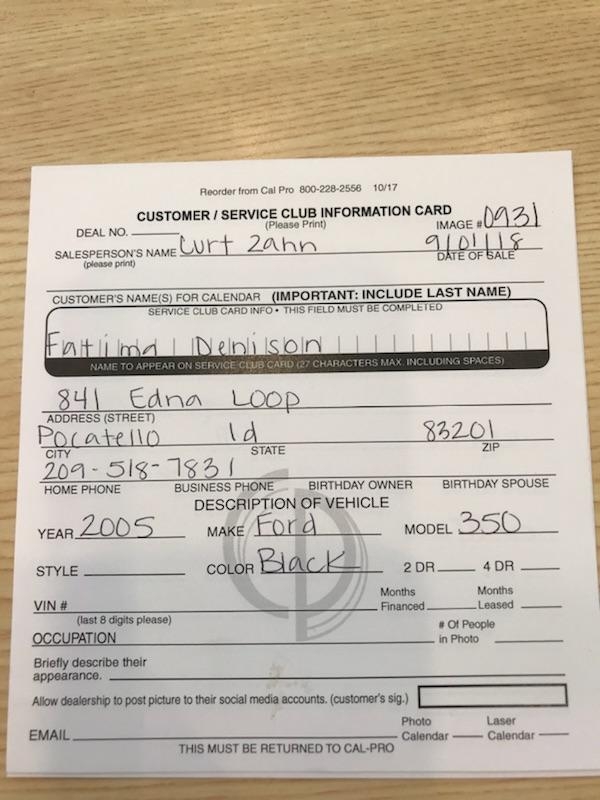 Reorder from Cal Pro 800-228-2556 10/17
CUSTOMER / SERVICE CLUB INFORMATION CARD
(Please Print)
DEAL NO. IMAGE # 0931
SALESPERSON'S NAME Curt Zahn 9/01/18
(please print) DATE OF SALE
CUSTOMER'S NAME(S) FOR CALENDAR (IMPORTANT: INCLUDE LAST NAME)
SERVICE CLUB CARD INFO • THIS FIELD MUST BE COMPLETED
Fatima Denison
NAME TO APPEAR ON SERVICE CLUB CARD (27 CHARACTERS MAX. INCLUDING SPACES)
841 Edna Loop
ADDRESS (STREET)
Pocatello Id 83201
CITY STATE ZIP
209-518-7831
HOME PHONE BUSINESS PHONE BIRTHDAY OWNER BIRTHDAY SPOUSE
DESCRIPTION OF VEHICLE
YEAR 2005 MAKE Ford MODEL 350
STYLE COLOR Black 2 DR 4 DR
Months Months
VIN # Financed Leased
(last 8 digits please) # Of People
OCCUPATION in Photo
Briefly describe their
appearance.
Allow dealership to post picture to their social media accounts. (customer's sig.)
Photo Laser
EMAIL Calendar Calendar
THIS MUST BE RETURNED TO CAL-PRO